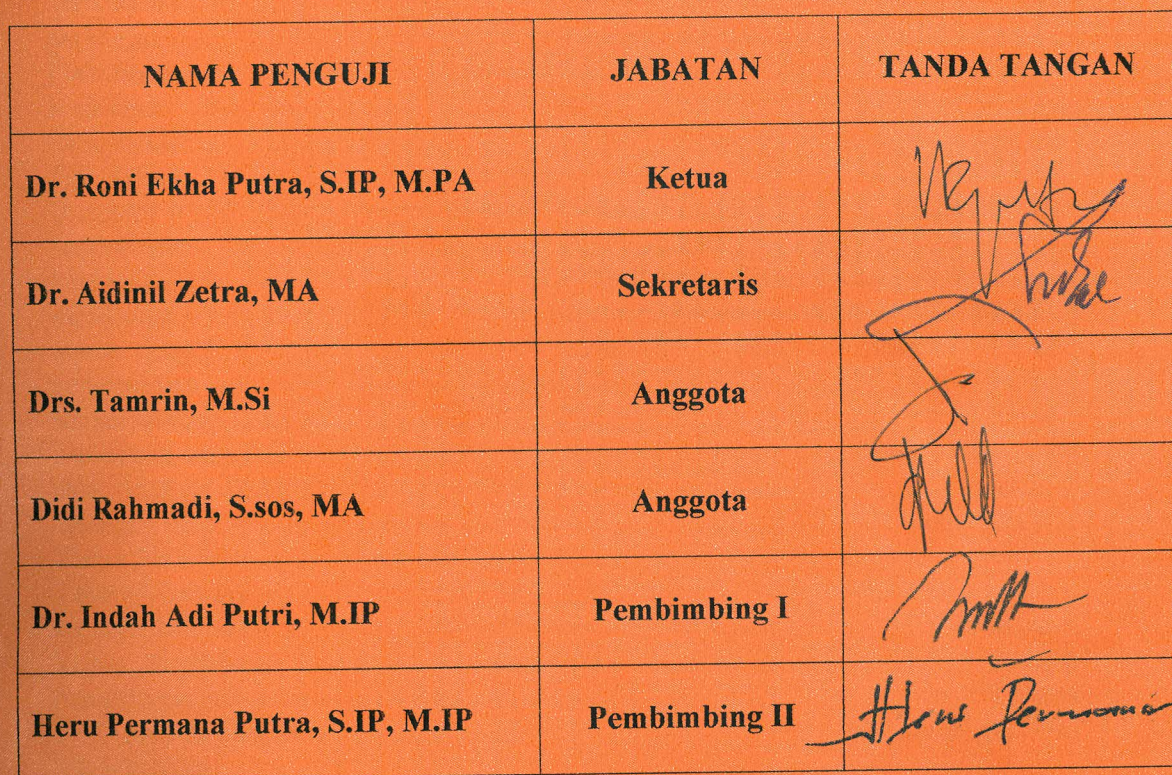 NAMA PENGUJI JABATAN TANDA TANGAN
Dr. Roni Ekha Putra, S.IP, M.PA Ketua
Dr. Aidinil Zetra, MA Sekretaris
Drs. Tamrin, M.Si Anggota
Didi Rahmadi, S.sos, MA Anggota
Dr. Indah Adi Putri, M.IP Pembimbing I
Heru Permana Putra, S.IP, M.IP Pembimbing II Heru Permana